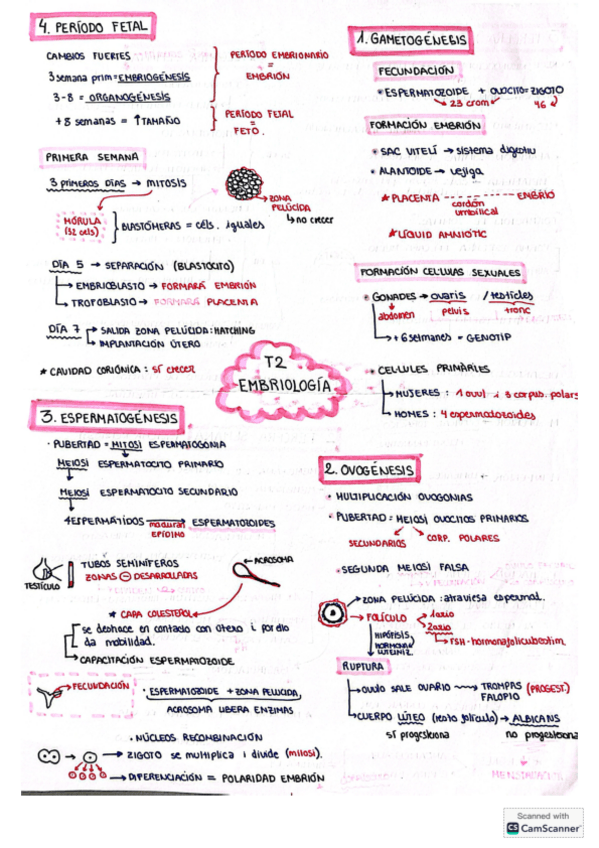 4. PERÍODO FETAL
CAMBIOS FUERTES
3 semana prim = EMBRIOGÉNESIS
3-8 = ORGANOGÉNESIS
PERÍODO EMBRIONARIO
=
EMBRIÓN
+8 semanas = ↑TAMAÑO
PERÍODO FETAL
=
FETO.
PRIMERA SEMANA
3 primeros días → MITOSIS
MÓRULA
(32 cels)
BLASTÓMERAS = céls. iguales
ZONA
PELÚCIDA
↳ no crecer
DÍA 5 → SEPARACIÓN (BLASTOCITO)
EMBRIOBLASTO → FORMARÁ EMBRIÓN
TROFOBLASTO → FORMARÁ PLACENTA
DÍA 7
SALIDA ZONA PELÚCIDA: HATCHING
IMPLANTACIÓN ÚTERO
* CAVIDAD CORIÓNICA: SÍ CRECER
T2
EMBRIOLOGÍA
1. GAMETOGÉNESIS
FECUNDACIÓN
* ESPERMATOZOIDE + OVOCITO = ZIGOTO
23 crom
46
FORMACIÓN EMBRIÓN
* SAC VITELÍ → sistema digestiu
* ALANTOIDE → vejiga
* PLACENTA ---- EMBRIO
cordón
umbilical
* LÍQUID AMNIÒTIC
FORMACIÓN CELLULAS SEXUALES
* GONADES → ovaris / testicles
abdomen
pelvis
tronc
+6 setmanes = GENOTIP
* CELLULES PRIMÀRIES
MUJERES: 1 òvul i 3 corpus. polars
HOMES: 4 espermatozoides
2. OVOGÉNESIS
* MULTIPLICACIÓN OVOGONIAS
* PUBERTAD = MEIOSI OVOCITOS PRIMARIOS
SECUNDARIOS
CORP. POLARES
* SEGUNDA MEIOSI FALSA
ZONA PELÚCIDA: atraviesa espermat.
FOLÍCULO
1ario
2ario
FSH-hormona foliculoestim.
HIPÓFISIS
HORMONA
LUTEINIZ.
RUPTURA
OVULO SALE OVARIO → TROMPAS (PROGEST.)
FALOPIO
CUERPO LÚTEO (resto folículo) → ALBICANS
SÍ progesterona
no progesterona
3. ESPERMATOGÉNESIS
· PUBERTAD = MITOSI ESPERMATOGONIA
MEIOSI ESPERMATOCITO PRIMARIO
MEIOSI ESPERMATOCITO SECUNDARIO
4 ESPERMÁTIDOS
maduran
EPÍDIMO
ESPERMATOZOIDES
TESTÍCULO
TUBOS SEMINÍFEROS
ZONAS ⊖ DESARROLLADAS
ACROSOMA
* CAPA COLESTEROL
se deshace en contacto con útero i por ello
da mobilidad.
CAPACITACIÓN ESPERMATOZOIDE
FECUNDACIÓN
· ESPERMATOZOIDE + ZONA PELUCIDA,
ACROSOMA LIBERA ENZIMAS
· NÚCLEOS RECOMBINACIÓN
ZIGOTO se multiplica i divide (mitosi).
DIFERENCIACIÓN = POLARIDAD EMBRIÓN
Scanned with
CS CamScanner